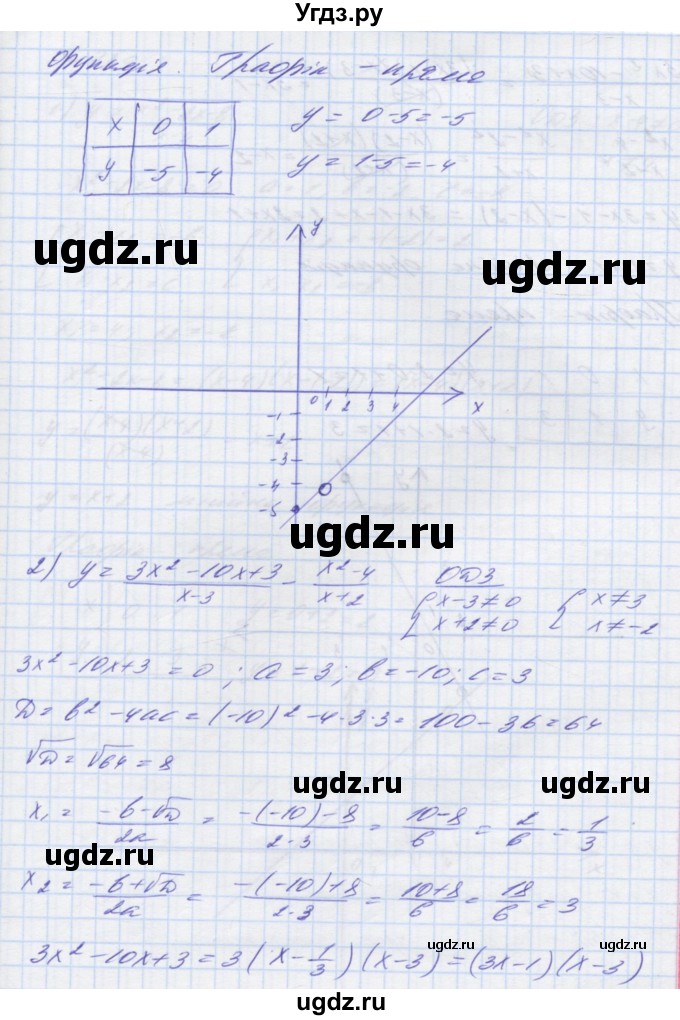 Угдз.ру
функція. Графік - пряма
x 0 1
y -5 -4
y = 0-5 = -5
y = 1-5 = -4
ugdz.ru
ugdz.ru
y
0 1 2 3 4 x
-1
-2
-3
-4
-5
ugdz.ru
2) y = (3x²-10x+3)/(x-3) - (x²-4)/(x+2) ОДЗ
{x-3≠0 {x≠3
{x+2≠0 {x≠-2
3x²-10x+3 = 0; a = 3; b = -10; c = 3
D = b²-4ac = (-10)²-4·3·3 = 100-36 = 64
√D = √64 = 8
ugdz.ru
x₁ = (-b-√D)/2a = (-(-10)-8)/(2·3) = (10-8)/6 = 2/6 = 1/3
ugdz.ru
x₂ = (-b+√D)/2a = (-(-10)+8)/(2·3) = (10+8)/6 = 18/6 = 3
3x²-10x+3 = 3(x-1/3)(x-3) = (3x-1)(x-3)
ugdz.ru
ugdz.ru
ugdz.ru